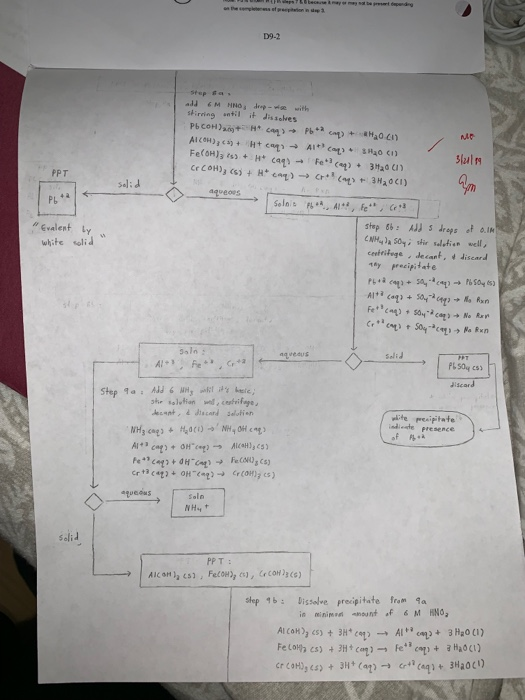 D9-2
Step 8a:
add 6M HNO3 drop-wise with
stirring until it dissolves
Pb(OH)2(s) + H+ (aq) → Pb+2 (aq) + 2H2O (l)
Al(OH)3 (s) + H+ (aq) → Al+3 (aq) + 3H2O (l)
Fe(OH)3 (s) + H+ (aq) → Fe+3 (aq) + 3H2O (l)
Cr(OH)3 (s) + H+ (aq) → Cr+3 (aq) + 3H2O (l)
PPT
Pb+2
solid
aqueous
Soln: Pb+2, Al+3, Fe+3, Cr+3
"Evalent by
white solid"
Step 8b: Add 5 drops of 0.1M
(NH4)2 SO4; stir solution well,
centrifuge, decant, & discard
any precipitate
Pb+2 (aq) + SO4-2 (aq) → PbSO4 (s)
Al+3 (aq) + SO4-2 (aq) → No Rxn
Fe+3 (aq) + SO4-2 (aq) → No Rxn
Cr+3 (aq) + SO4-2 (aq) → No Rxn
Soln:
Al+3, Fe+3, Cr+3
aqueous
solid
PPT
PbSO4 (s)
discard
white precipitate
indicate presence
of Pb+2
Step 9a: Add 6 NH3 until it's basic;
stir solution well, centrifuge,
decant, & discard solution
NH3 (aq) + H2O (l) → NH4OH (aq)
Al+3 (aq) + OH- (aq) → Al(OH)3 (s)
Fe+3 (aq) + OH- (aq) → Fe(OH)3 (s)
Cr+3 (aq) + OH- (aq) → Cr(OH)3 (s)
aqueous
Soln
NH4+
solid
PPT:
Al(OH)3 (s), Fe(OH)3 (s), Cr(OH)3 (s)
Step 9b: Dissolve precipitate from 9a
in minimum amount of 6 M HNO3
Al(OH)3 (s) + 3H+ (aq) → Al+3 (aq) + 3H2O (l)
Fe(OH)3 (s) + 3H+ (aq) → Fe+3 (aq) + 3H2O (l)
Cr(OH)3 (s) + 3H+ (aq) → Cr+3 (aq) + 3H2O (l)